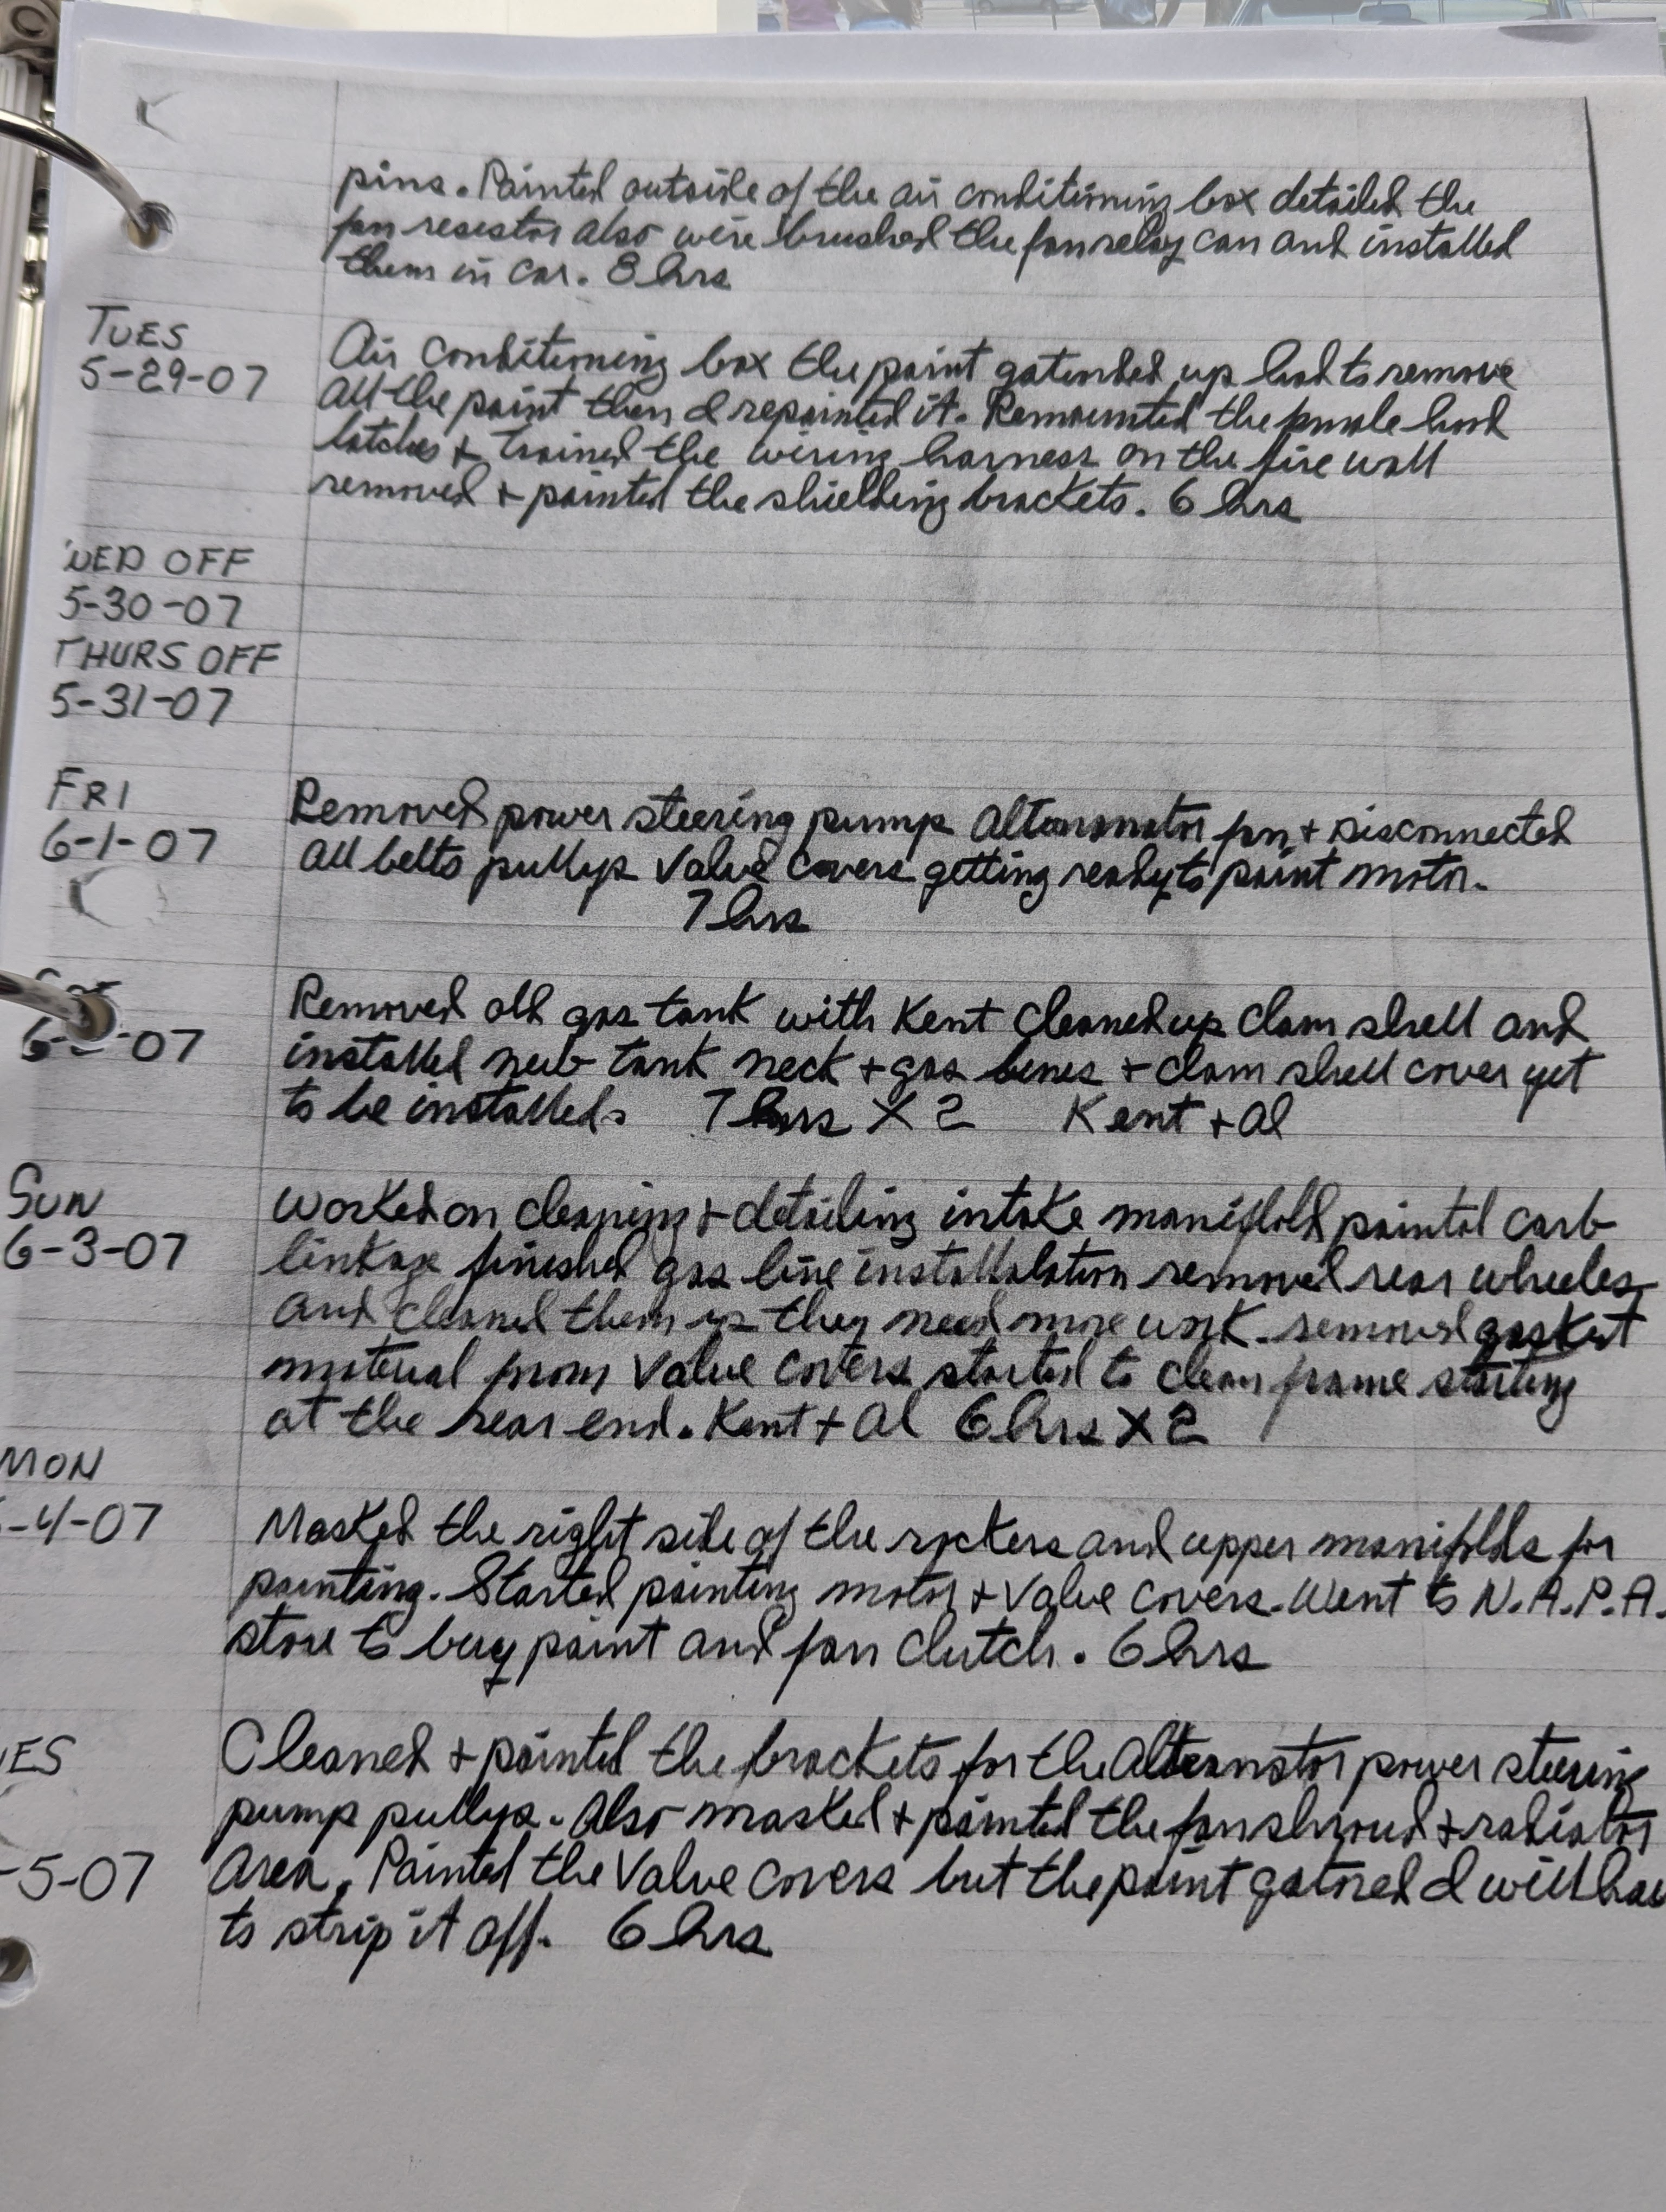 pins. Painted outside of the air conditioning box detailed the
fan resestor also wire brushed the fan relay can and installed
them in car. 8 hrs
TUES
5-29-07
Air conditioning box the paint gatorded up had to remove
all the paint then I repainted it. Remounted the hood
latches + trained the wiring harness on the fire wall
removed + painted the shielding brackets. 6 hrs
WED OFF
5-30-07
THURS OFF
5-31-07
FRI
6-1-07
Removed power steering pump alternator fan + Disconnected
all belts pullys Valve covers getting ready to paint motor.
7 hrs
6- -07
Removed old gas tank with Kent Cleaned up clam shell and
installed new tank neck + gas lines + clam shell cover yet
to be installed. 7 hrs X 2 Kent + Al
SUN
6-3-07
worked on cleaning + detailing intake manifold painted carb
linkage finished gas line installalation removed rear wheeles
and cleaned them up they need more work. removed gasket
material from Valve covers started to clean frame starting
at the rear end. Kent + Al 6 hrs X 2
MON
-4-07
Masked the right side of the rockers and upper manifolds for
painting. Started painting motor + Valve covers. Went to N.A.P.A.
store to buy paint and fan clutch. 6 hrs
ES
-5-07
Cleaned + painted the brackets for the alternator power steering
pump pullys. Also masked + painted the fan shroud + radiator
area. Painted the Valve covers but the paint gatored I will hav
to strip it off. 6 hrs